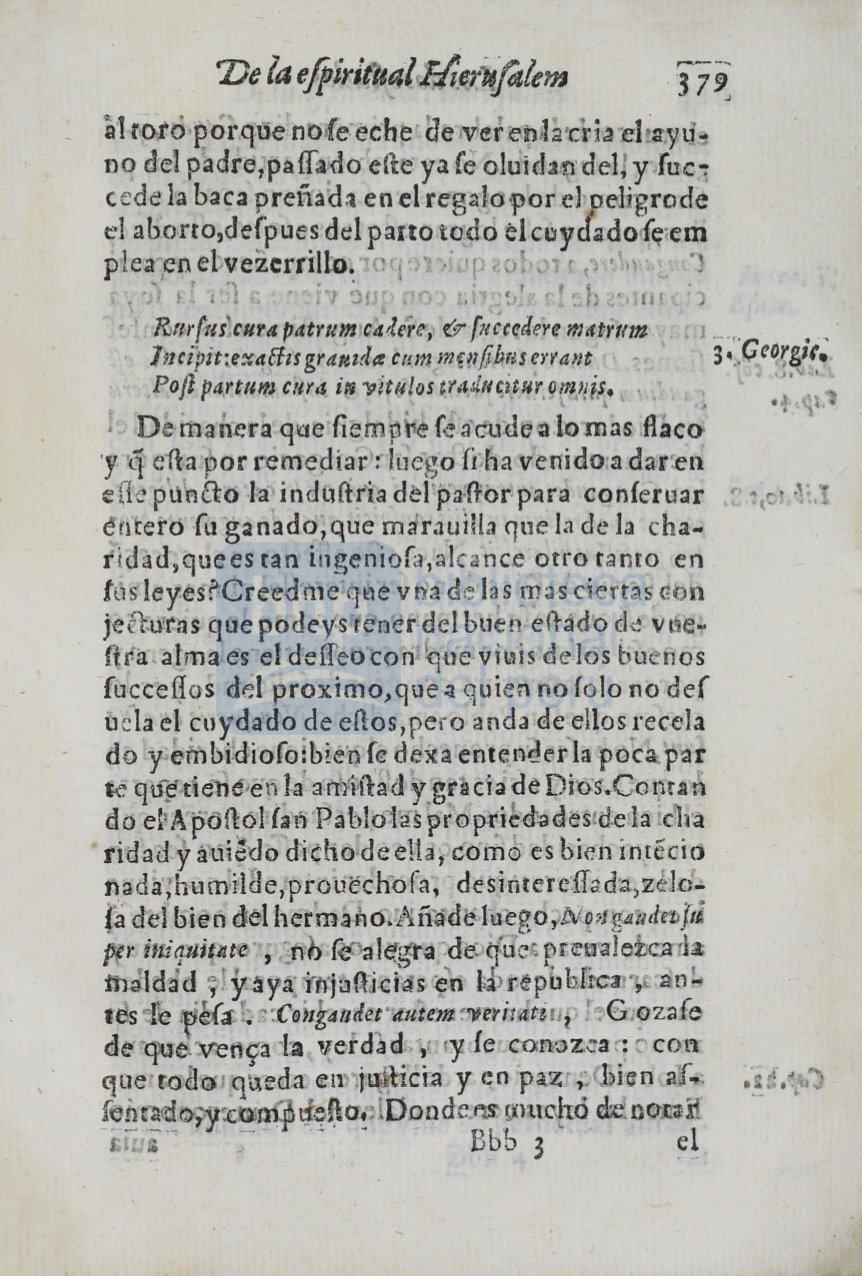 De la eſpiritual Hieruſalem 379
al toro porque no ſe eche de ver en la cria el ayu-
no del padre, paſſado eſte ya ſe oluidan del, y ſuc-
cede la baca preñada en el regalo por el peligro de
el aborto, deſpues del parto todo el cuydado ſe em
plea en el vezerrillo.
Rurſus cura patrum cadere, & ſuccedere matrum
Incipit: exactis grauidæ cum menſibus errant
3. Georgic.
Poſt partum cura in vitulos traducitur omnis.
De manera que ſiempre ſe acude a lo mas flaco
y q̃ eſta por remediar: luego ſi ha venido a dar en
eſte puncto la induſtria del paſtor para conſeruar
entero ſu ganado, que marauilla que la de la cha-
ridad, que es tan ingenioſa, alcance otro tanto en
ſus leyes? Creedme que vna de las mas ciertas con
jecturas que podeys tener del buen eſtado de vue-
ſtra alma es el deſſeo con que viuis de los buenos
ſucceſſos del proximo, que a quien no ſolo no deſ
uela el cuydado de eſtos, pero anda de ellos recela
do y embidioſo: bien ſe dexa entender la poca par
te que tiene en la amiſtad y gracia de Dios. Contan
do el Apoſtol ſan Pablo las propriedades de la cha
ridad y auiẽdo dicho de ella, como es bien intẽcio
nada, humilde, prouechoſa, desintereſſada, zelo-
ſa del bien del hermano. Añade luego, Non gaudet ſu
per iniquitate, no ſe alegra de que preualezca la
maldad, y aya injuſticias en la republica, an-
tes le peſa. Congaudet autem veritati, Gozaſe
de que vença la verdad, y ſe conozca: con
que todo queda en juſticia y en paz, bien aſ-
ſentado, y compueſto. Donde es mucho de notar
Bbb 3 el